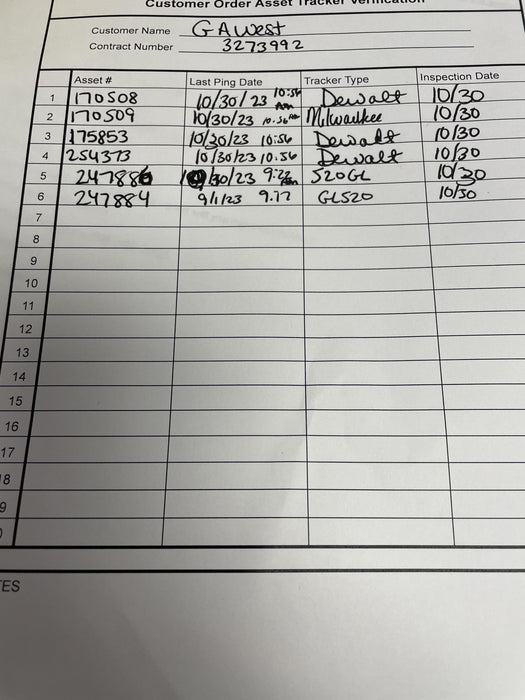 Customer Order Asset Tracker Verification
Customer Name GAWest
Contract Number 3273992
Asset # Last Ping Date Tracker Type Inspection Date
1 170508 10/30/23 10:56 Am Dewalt 10/30
2 170509 10/30/23 10.56 Am Milwaukee 10/30
3 175853 10/30/23 10:56 Dewalt 10/30
4 254373 10/30/23 10.56 Dewalt 10/30
5 247886 10/30/23 9:22 Am 520GL 10/30
6 247884 9/1/23 9.17 GL520 10/30
7
8
9
10
11
12
13
14
15
16
17
8
9
TES